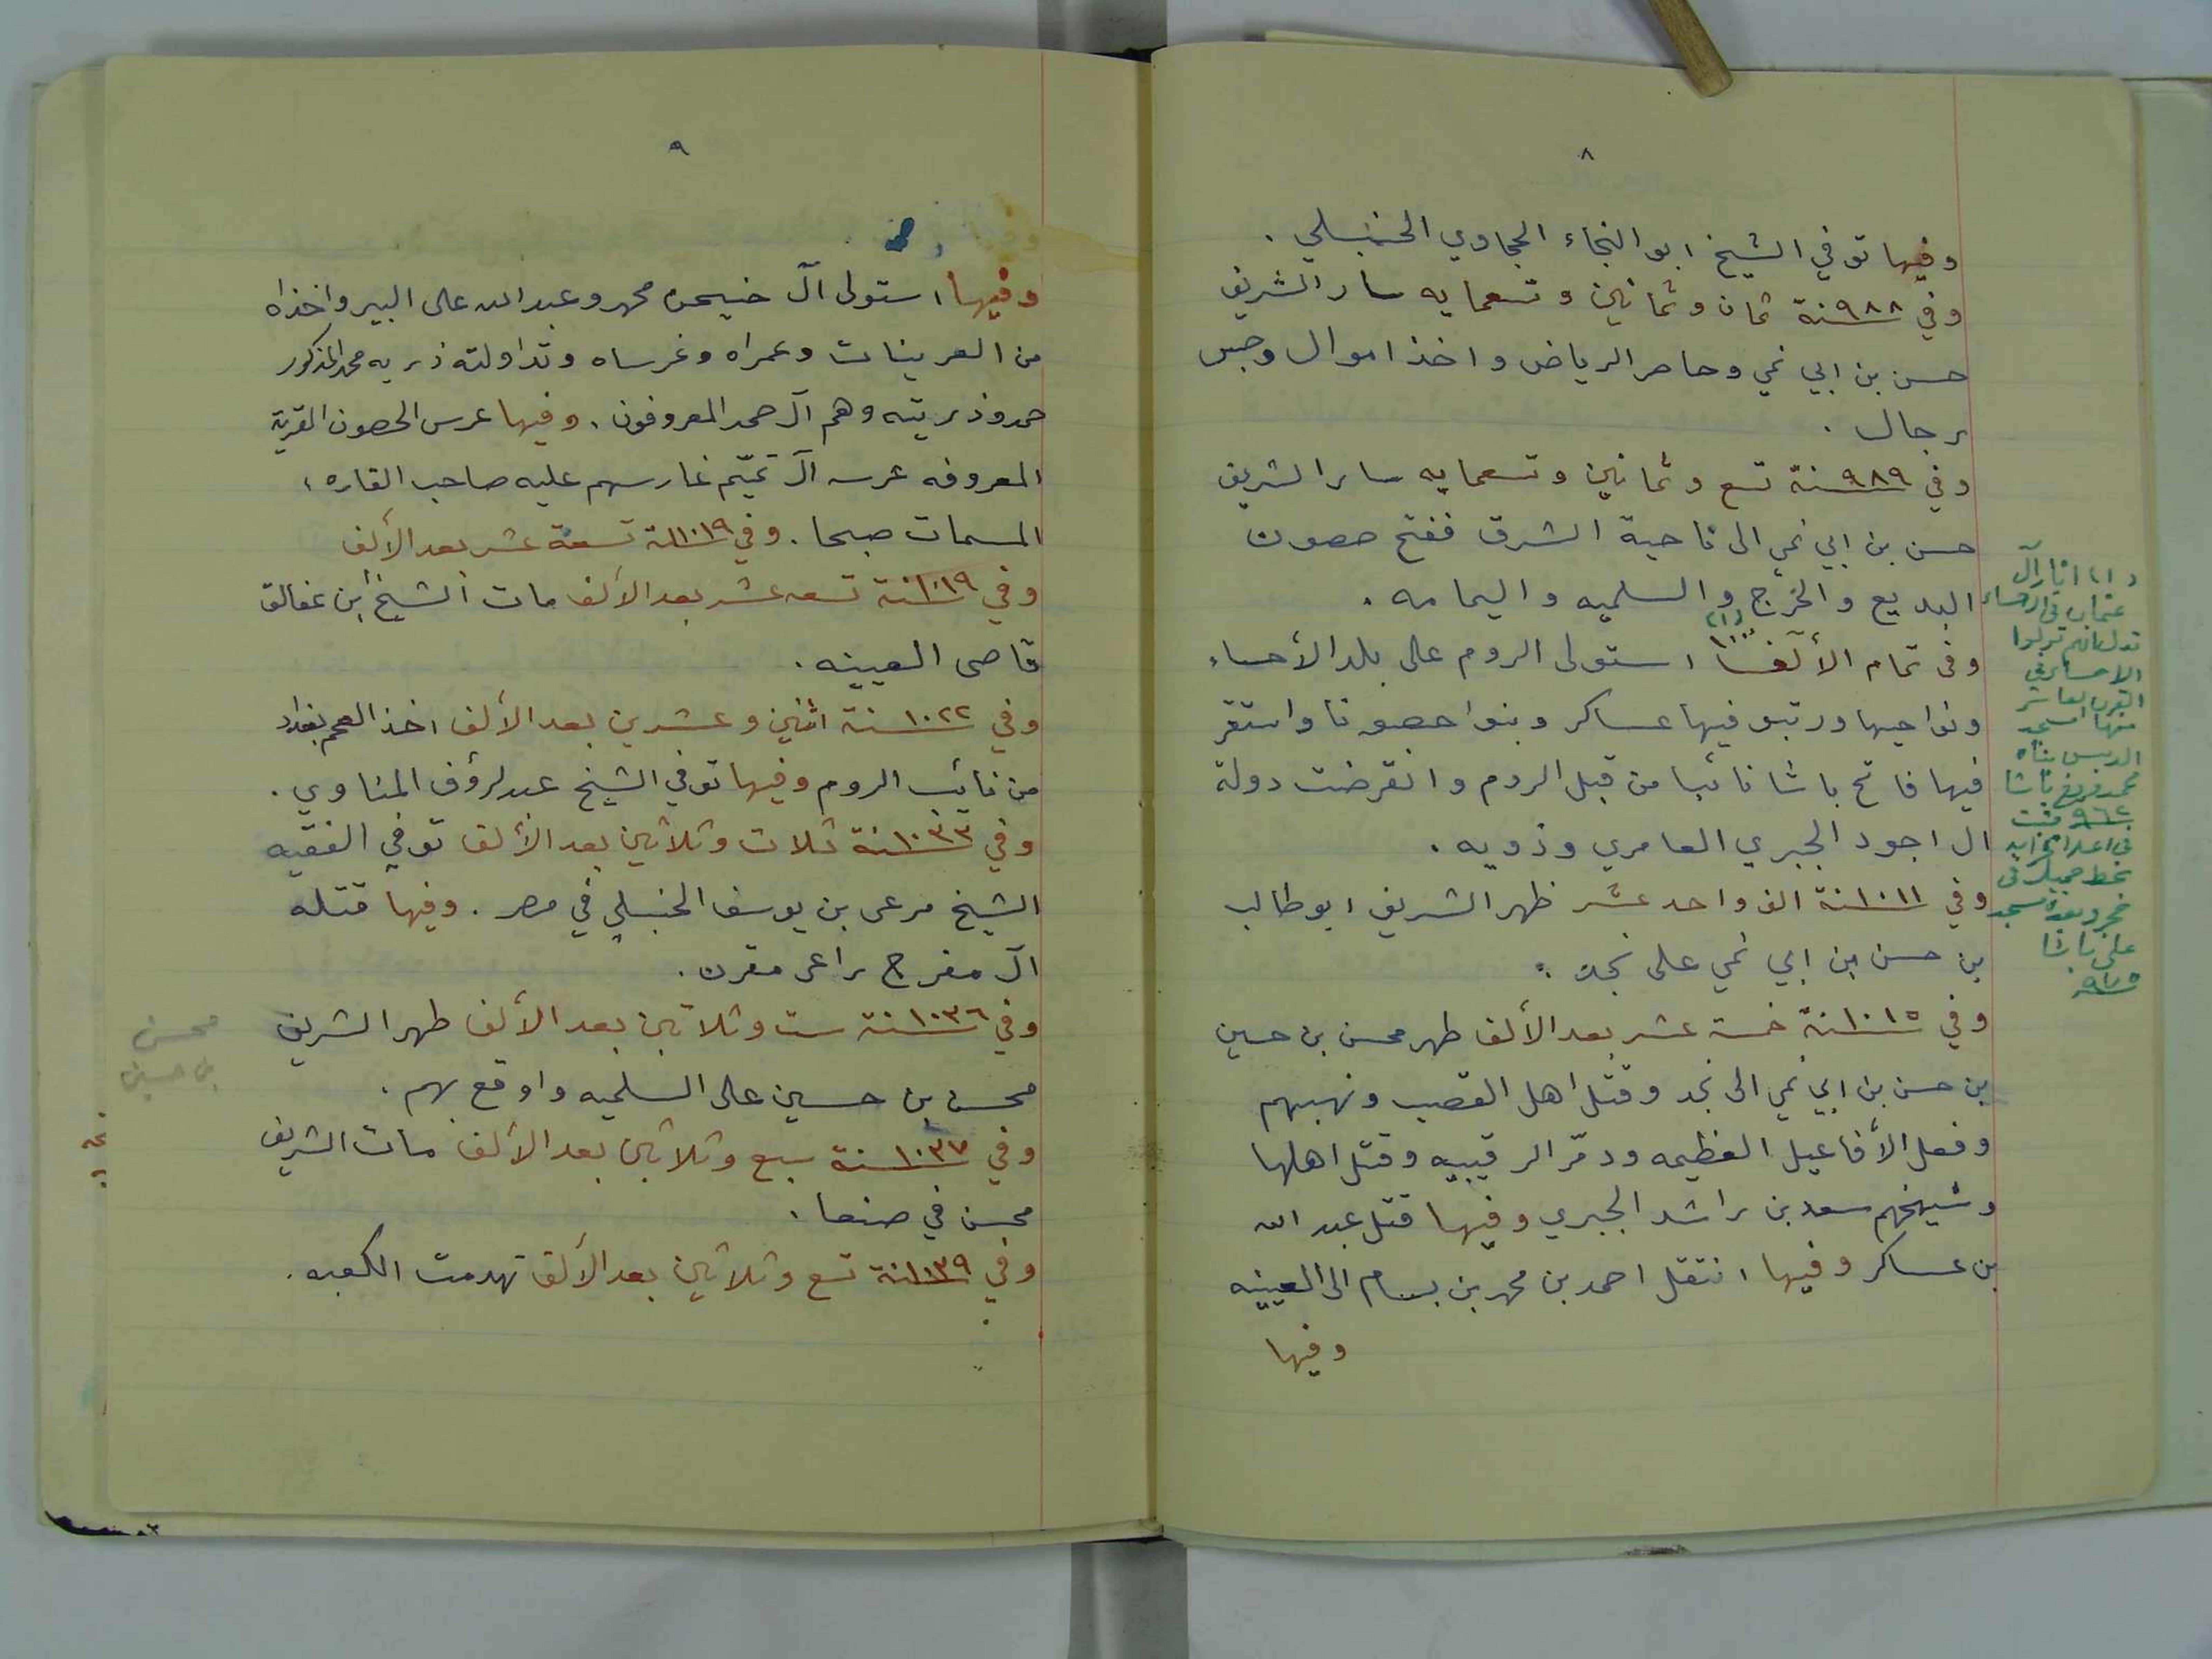 ٨
وفيها توفي الشيخ ابو النجاء الحجاوي الحنبلي .
وفي ٩٨٨ سنة ثمان وثمانين وتسعمايه سار الشريف
حسن بن ابي نمي وحاصر الرياض واخذ اموال وحبس
رجال .
وفي ٩٨٩ سنة تسع وثمانين وتسعمايه سار الشريف
حسن بن ابي نمي الى ناحية الشرق ففتح حصون
البديع والخرج والسلميه واليمامه .
وفى تمام الألف ١٠٠٠ (١) استولى الروم على بلد الأحساء
ونواحيها ورتبو فيها عساكر وبنوا حصونا واستقر
فيها فاتح باشا نائبا من قبل الروم وانقرضت دولة
ال اجود الجبري العامري وذويه .
وفي ١٠١١ سنة الف واحد عشر ظهر الشريف ابو طالب
بن حسن بن ابي نمي على نجد .
وفي ١٠١٥ سنة خمسة عشر بعد الألف ظهر محسن بن حسين
بن حسن بن ابي نمي الى نجد وقتل اهل القصب ونهبهم
وفعل الأفاعيل العظيمه ودمّر الرقيبيه وقتل اهلها
وشيخهم سعد بن راشد الجبري وفيها قتل عبد الله
بن عساكر وفيها انتقل احمد بن محمد بن بسام الى العيينه
وفيها
(١) اثار آل
عثمان فى الاحساء
تدل انهم تولوا
الاحساء في
القرن العاشر
منها مسجد
الدبس بناه
محمد فروخ باشا
٩٦٢
بخط جميل فى
حجر وبعده مسجد
على باشا
٩٧٥
٩
وفيها استولى آل حنيحن محمد وعبد الله على البير واخذاه
من العرينات وعمراه وغرساه وتداولته ذريه محمد المذكور
حمد وذريته وهم آل حمد المعروفون . وفيها غرس الحصون القرية
المعروفه غرسه آل تميّم غارسهم عليه صاحب القاره ،
المسمات صبحا . وفي ١٠١٩ سنة تسعة عشر بعد الألف
وفي ١٠١٩ سنة تسعه عشر بعد الألف مات الشيخ ابن عفالق
قاصى العيينه .
وفي ١٠٢٢ سنة اثنين وعشرين بعد الألف اخذ العجم بغداد
من نائب الروم وفيها توفي الشيخ عبد لرؤف المناوي .
وفي ١٠٣٣ سنة ثلاث وثلاثين بعد الألف توفي الفقيه
الشيخ مرعى بن يوسف الحنبلي في مصر . وفيها قتله
آل مفرج راعى مقرن .
وفي ١٠٣٦ سنة ست وثلاثين بعد الألف ظهر الشريف
محسن بن حسين على السلميه واوقع بهم .
وفي ١٠٣٧ سنة سبع وثلاثين بعد الألف مات الشريف
محسن في صنعا .
وفي ١٠٣٩ سنة تسع وثلاثين بعد الألف تهدمت الكعبه .
محسن
بن حسين